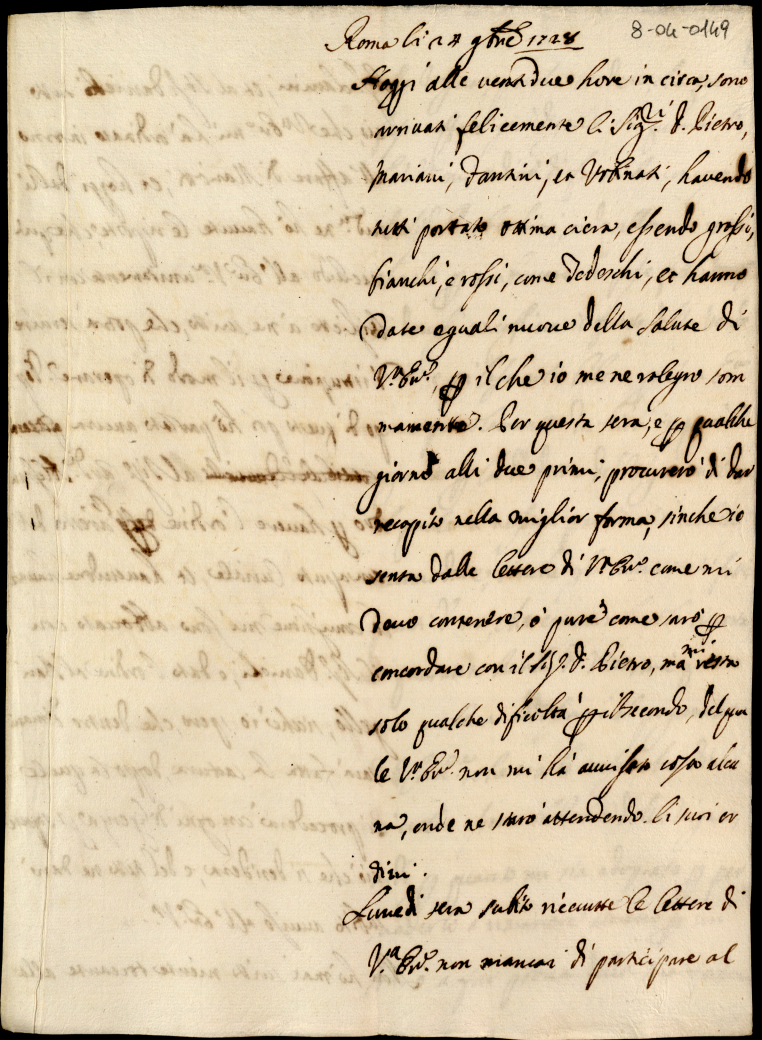 8-04-0149
Roma li 24 9bre 1728
Hoggi alle ventidue hore in circa, sono
arrivati felicemente li Sig.ri D. Pietro,
Mariani, Dantini, et Urbinati, havendo
tutti portato ottima ciera, essendo grossi,
bianchi, e rossi, come Tedeschi, et hanno
date eguali nuove della salute di
V.ra Ecc.a, p il che io me ne ralegro som
mamente. Per questa sera, e p qualche
giorno alli due primi, procurerò di dar
recapito nella miglior forma, sinche io
senta dalle lettere di V.ra Ecc.a come mi
devo contenere, ò pure come sarò p
concordare con il Sig.r D. Pietro, ma mi resta
solo qualche dificoltà p il secondo, del qua
le V.ra Ecc.a non mi hà avvisato cosa alcu
na, onde ne starò attendendo li suoi or
dini.
Lunedi sera subito riceuute le lettere di
V.ra Ecc.a non mancai di participare al